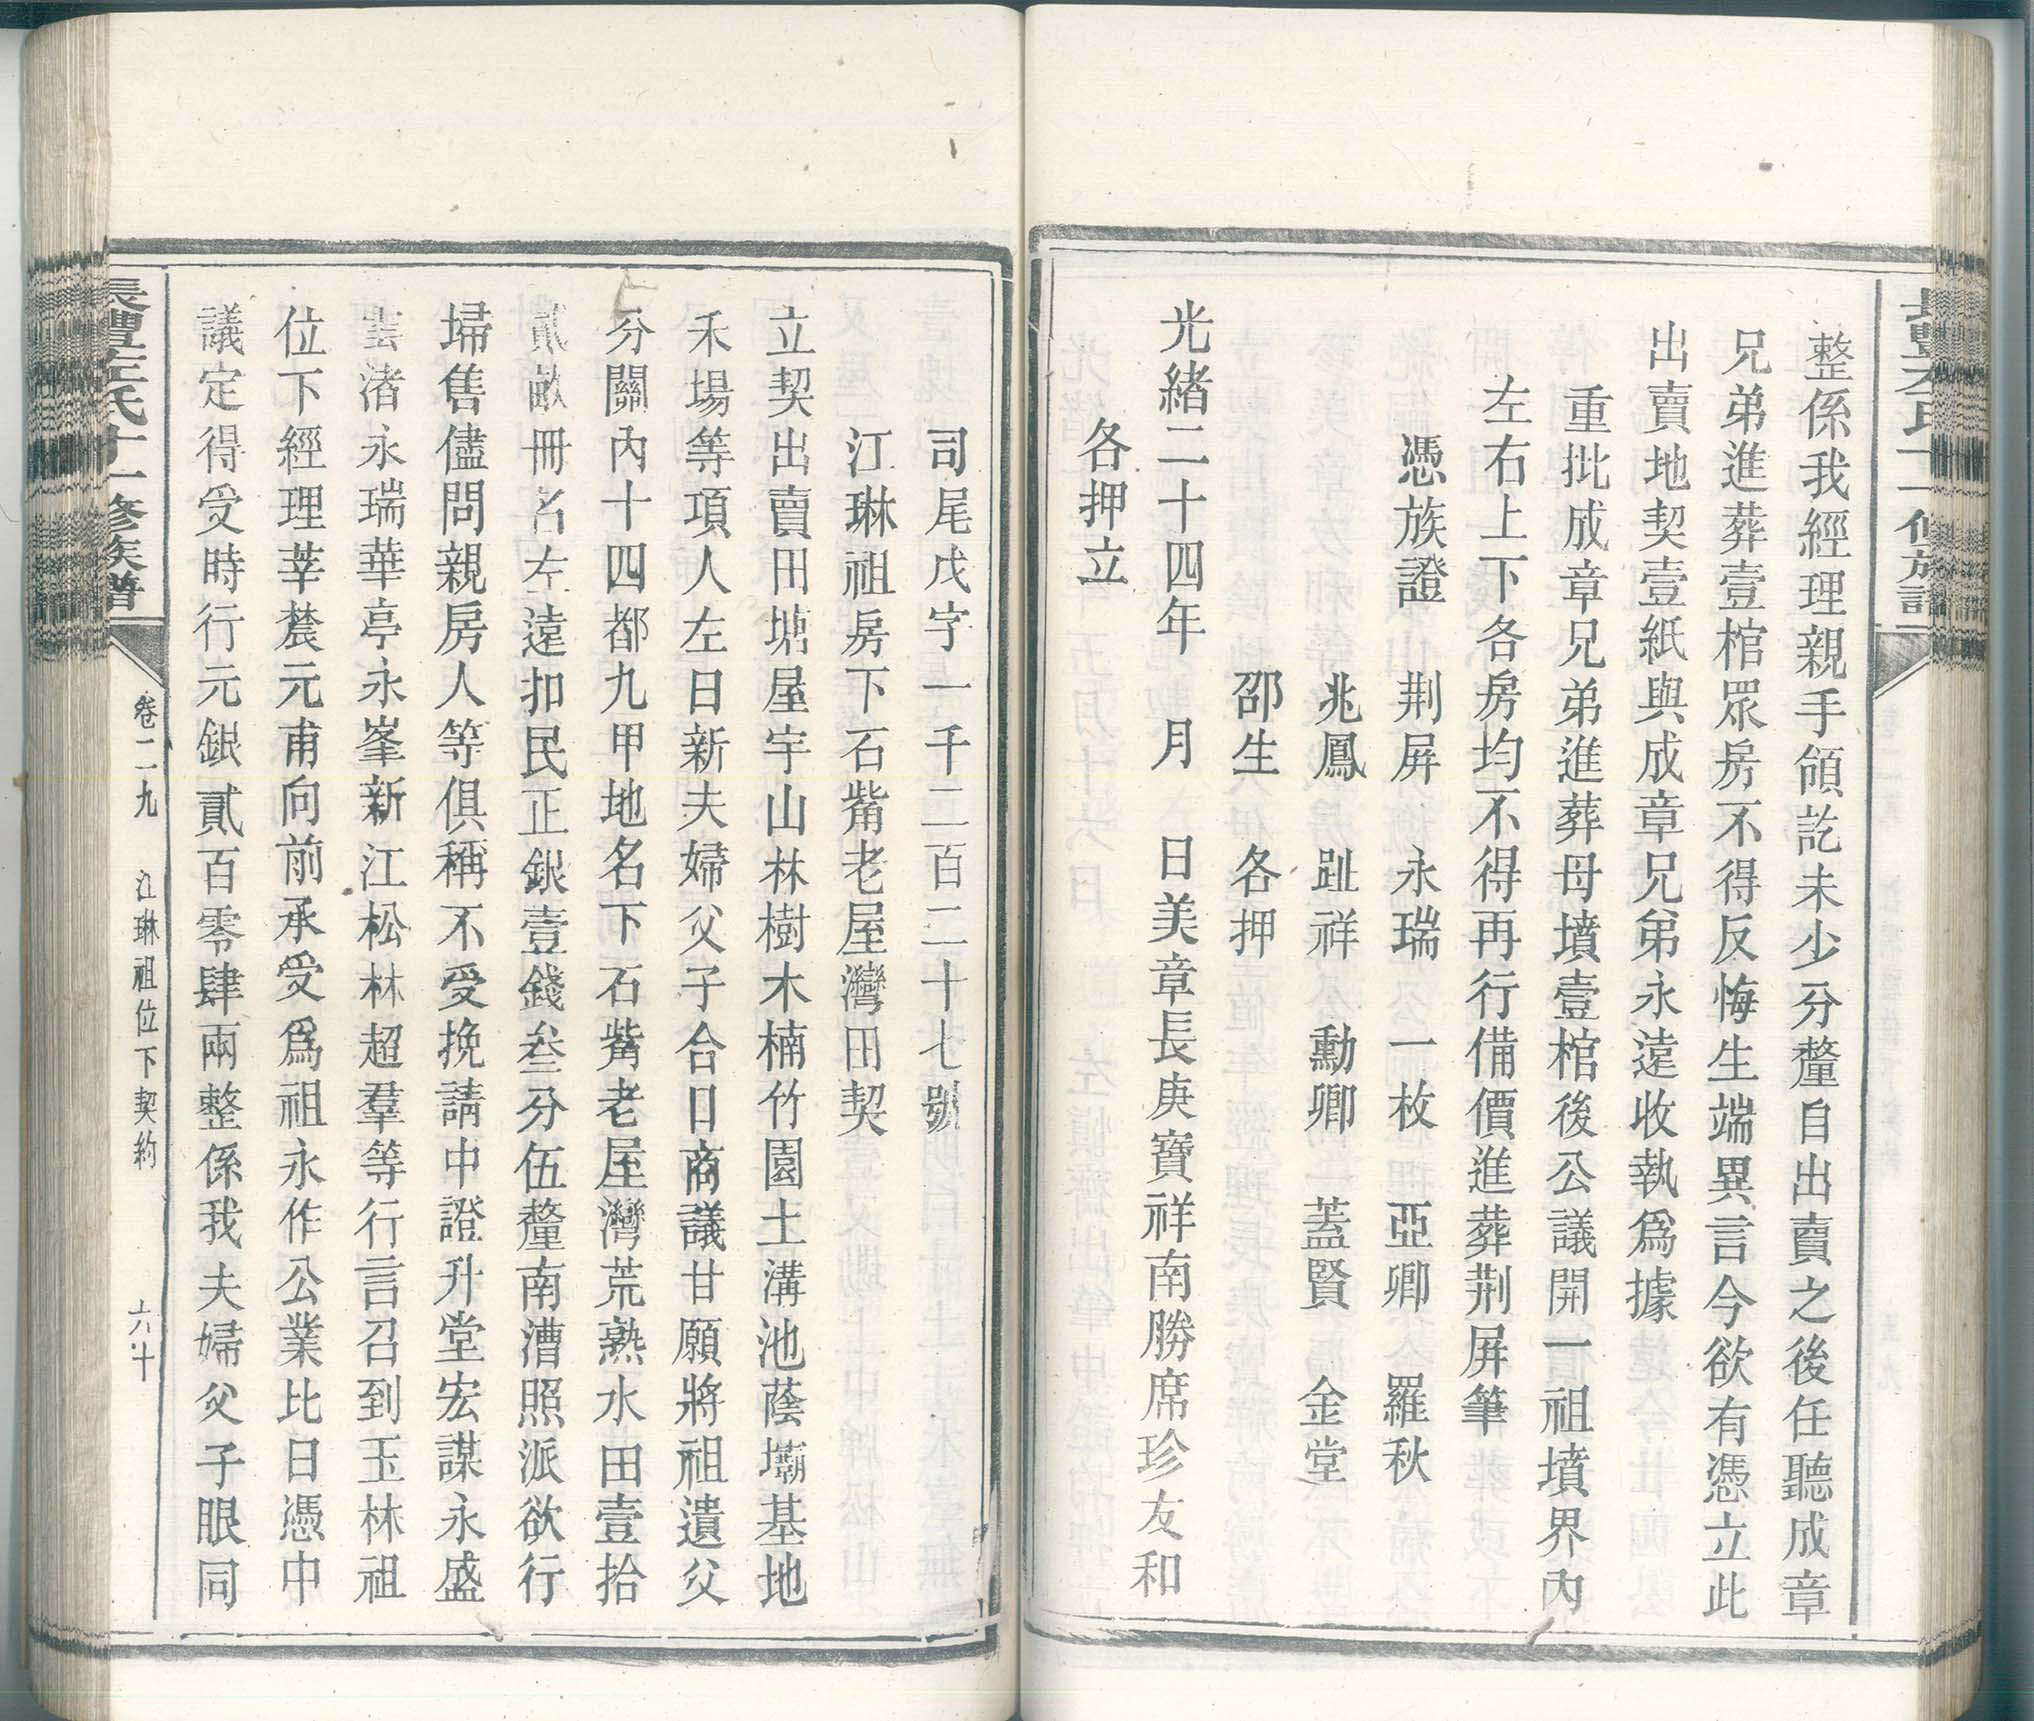 整係我經理親手領訖未少分釐自出賣之後任聽成章
兄弟進葬壹棺眾房不得反悔生端異言今欲有憑立此
出賣地契壹紙與成章兄弟永遠收執爲據
重批成章兄弟進葬母墳壹棺後公議開一祖墳界內
左右上下各房均不得再行備價進葬荆屏筆
憑族證 荆屏 永瑞 一枚 亞卿 羅秋
兆鳳 趾祥 勳卿 蓋賢 金堂
邵生 各押
光緒二十四年 月 日美章長庚寶祥南勝席珍友和
各押立
司尾戊字一千二百二十七號
江琳祖房下石觜老屋灣田契
立契出賣田塘屋宇山林樹木楠竹園土溝池蔭壩基地
禾場等項人左日新夫婦父子合日商議甘願將祖遺父
分關內十四都九甲地名下石觜老屋灣荒熟水田壹拾
貳畝冊名左遠扣民正銀壹錢叁分伍釐南漕照派欲行
埽售儘問親房人等俱稱不受挽請中證升堂宏謀永盛
雲渚永瑞華亭永峯新江松林超羣等行言召到玉林祖
位下經理莘農元甫向前承受爲祖永作公業比日憑中
議定得受時行元銀貳百零肆兩整係我夫婦父子眼同
長澧左氏十一修族譜
卷二九
江琳祖位下契約
六十